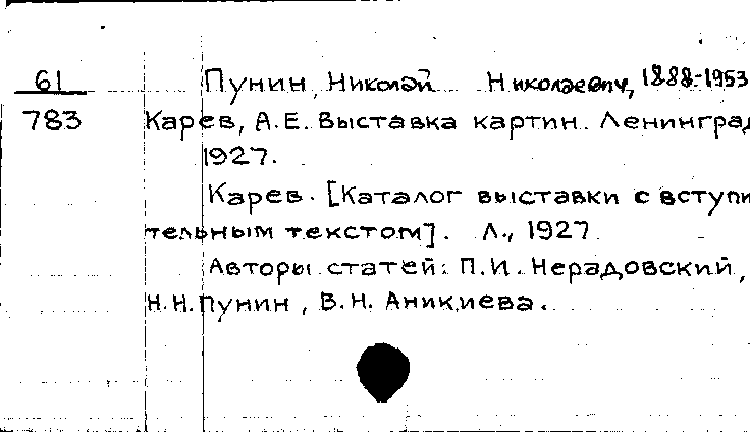 61 Пунин, Николай Николаевич, 1888-1953
783 Карев, А.Е. Выставка картин. Ленинград
1927.
Карев. [Каталог выставки с вступи
тельным текстом]. Л., 1927
Авторы статей: П.И. Нерадовский,
Н.Н. Пунин, В.Н. Аникиева.